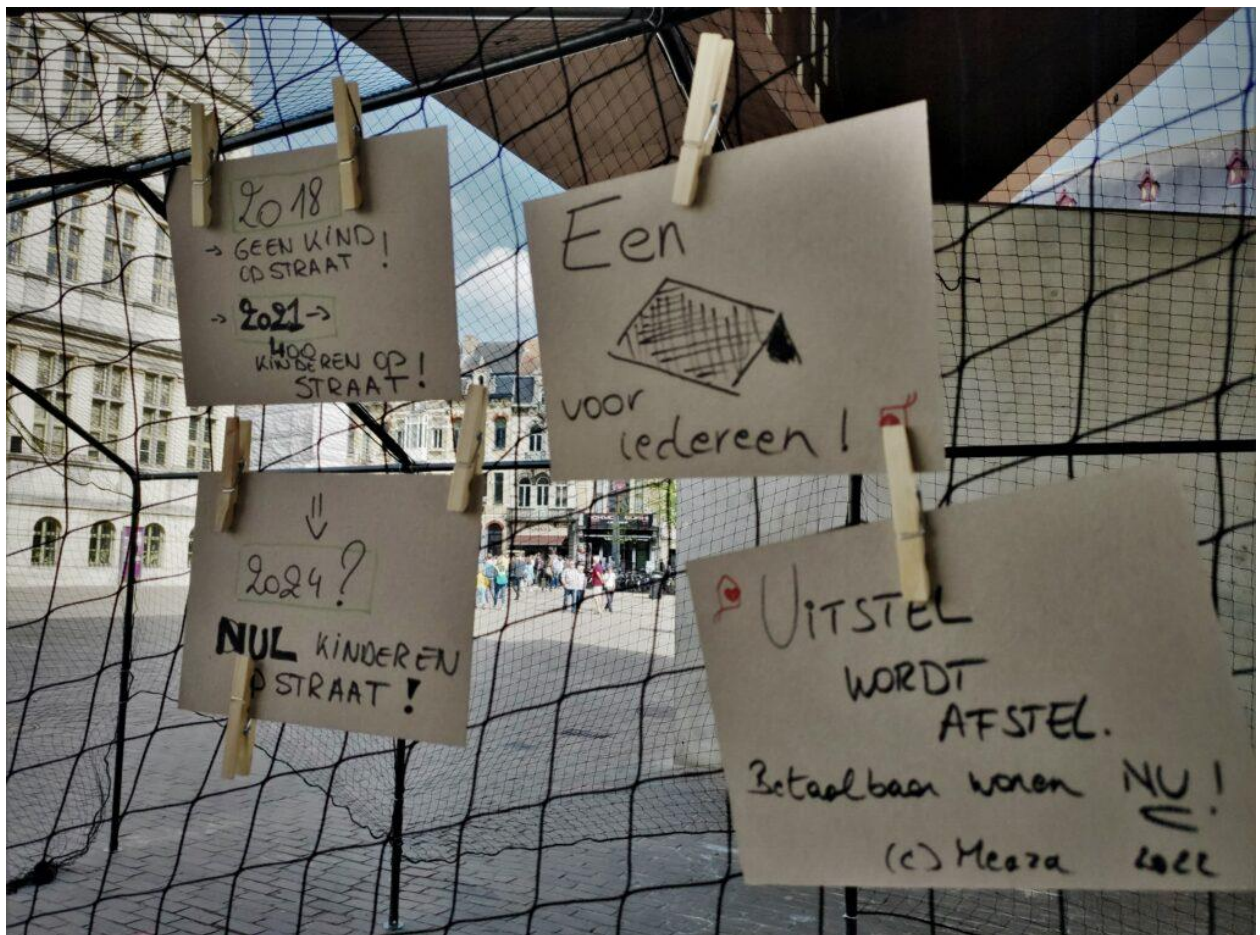 2018
→ GEEN KIND
OP STRAAT !
→ 2021 →
400
KINDEREN OP
STRAAT !
2024?
NUL KINDEREN
OP STRAAT !
Een
voor
iedereen !
UITSTEL
WORDT
AFSTEL.
Betaalbaar wonen NU !
(c) Meaza 2022